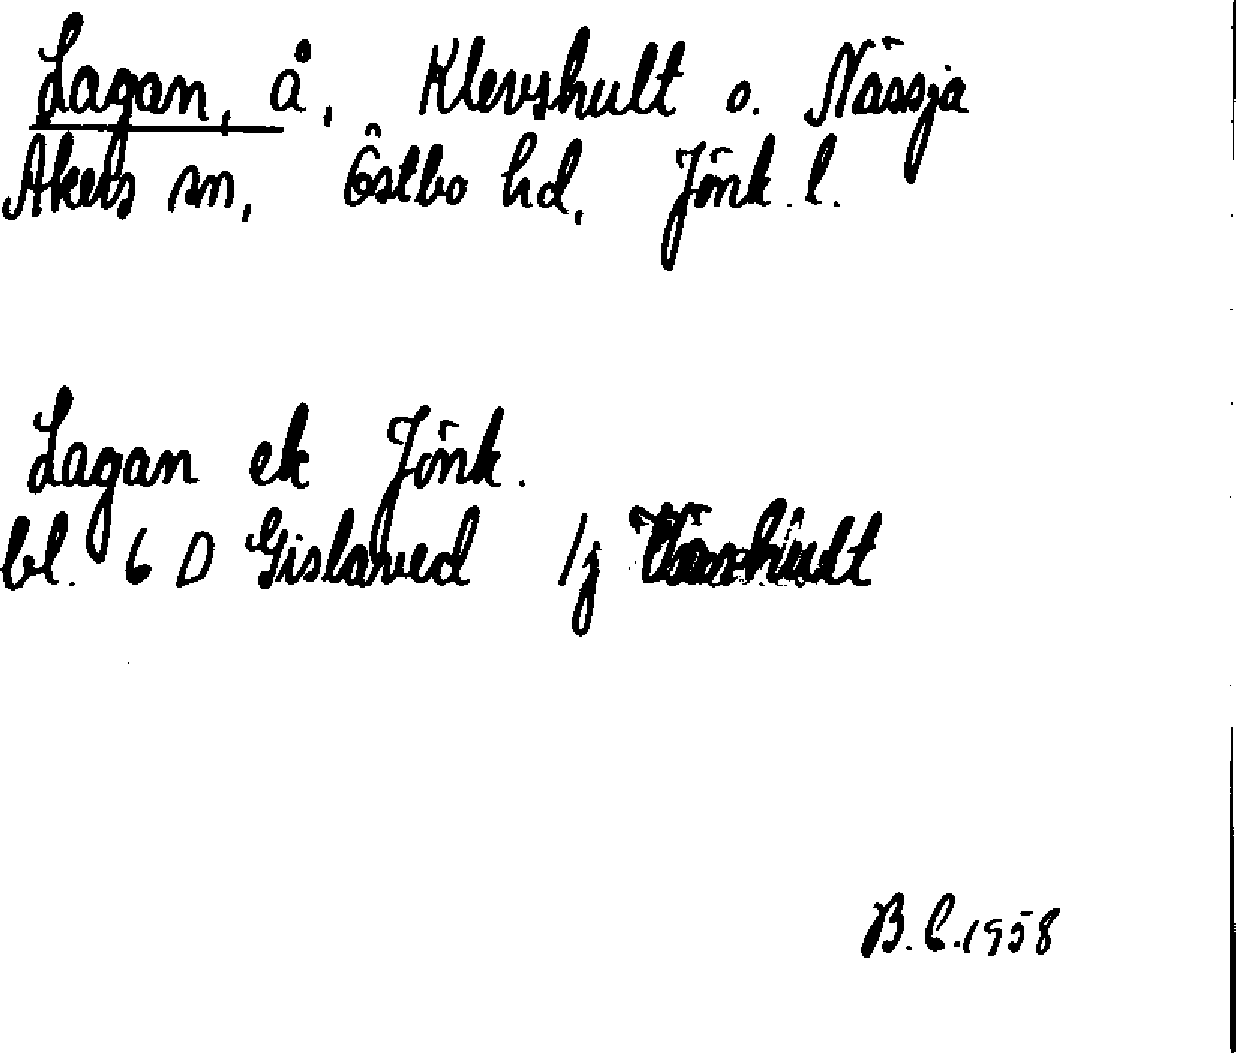 Lagan, å, Klevshult o. Nässja
Akers sn, Östbo hd, Jönk. l.
Lagan ek Jönk.
bl. 6 D Gislaved /j
B.C. 1958